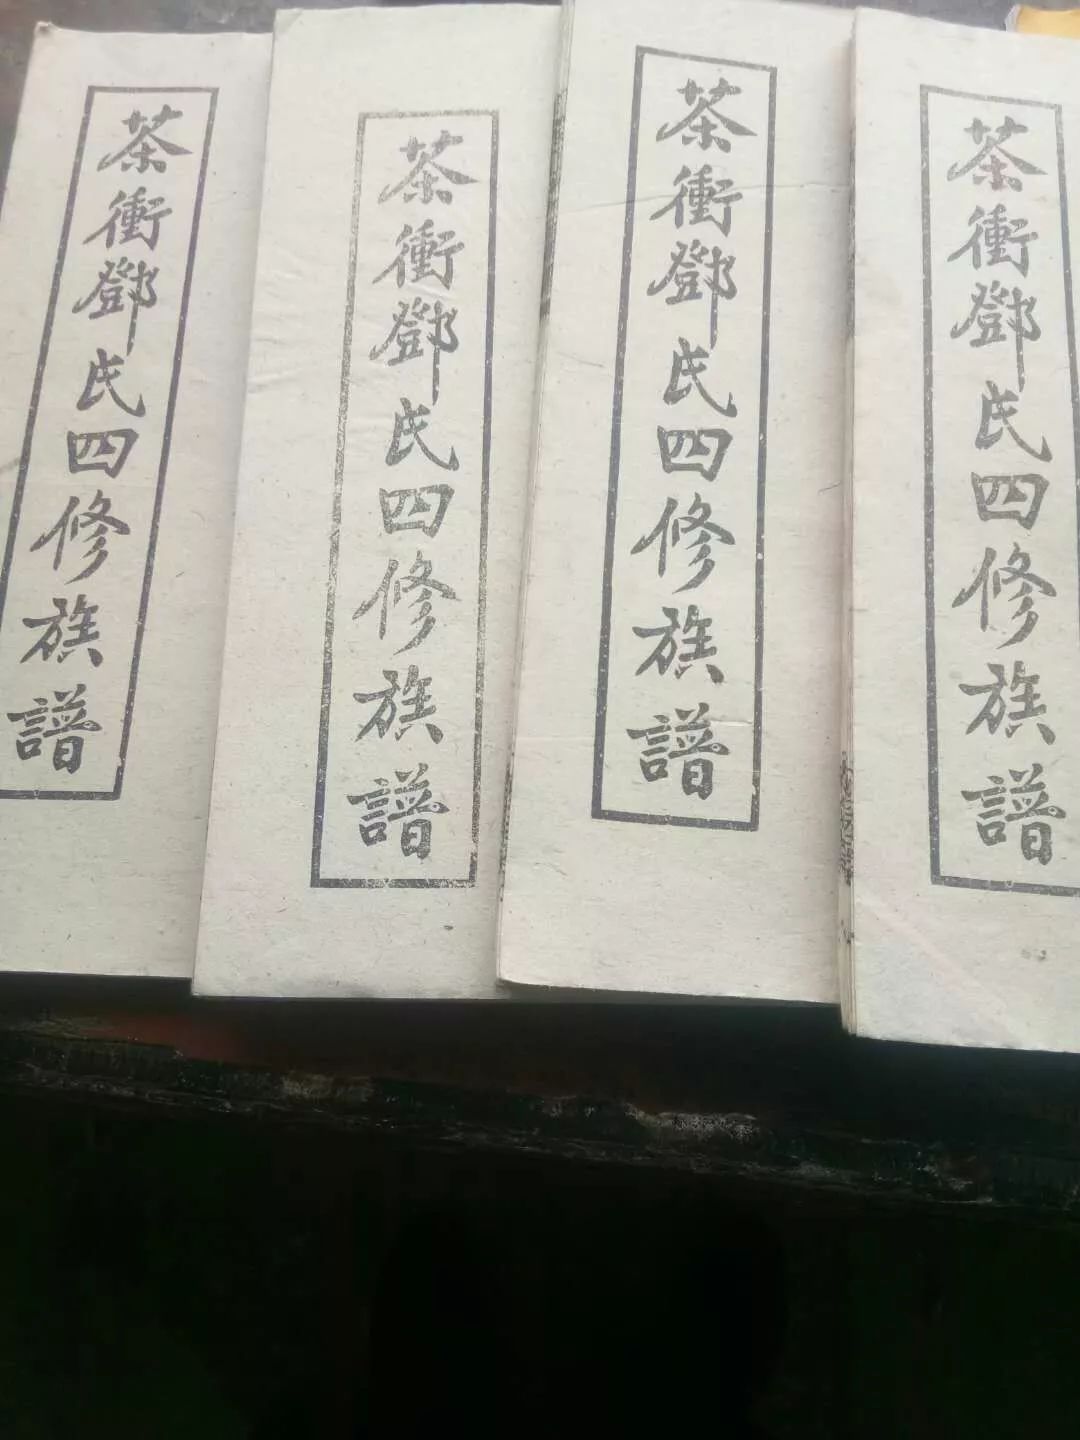 茶衝鄧氏四修族譜
茶衝鄧氏四修族譜
茶衝鄧氏四修族譜
茶衝鄧氏四修族譜